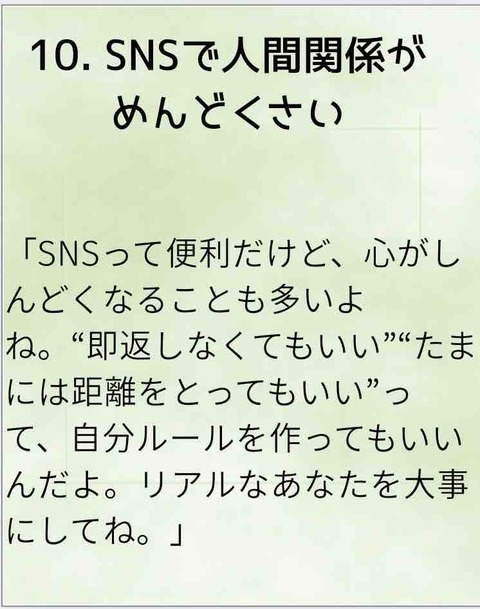 10. SNSで人間関係が
めんどくさい
「SNSって便利だけど、心がし
んどくなることも多いよ
ね。“即返しなくてもいい”“たま
には距離をとってもいい”っ
て、自分ルールを作ってもいい
んだよ。リアルなあなたを大事
にしてね。」